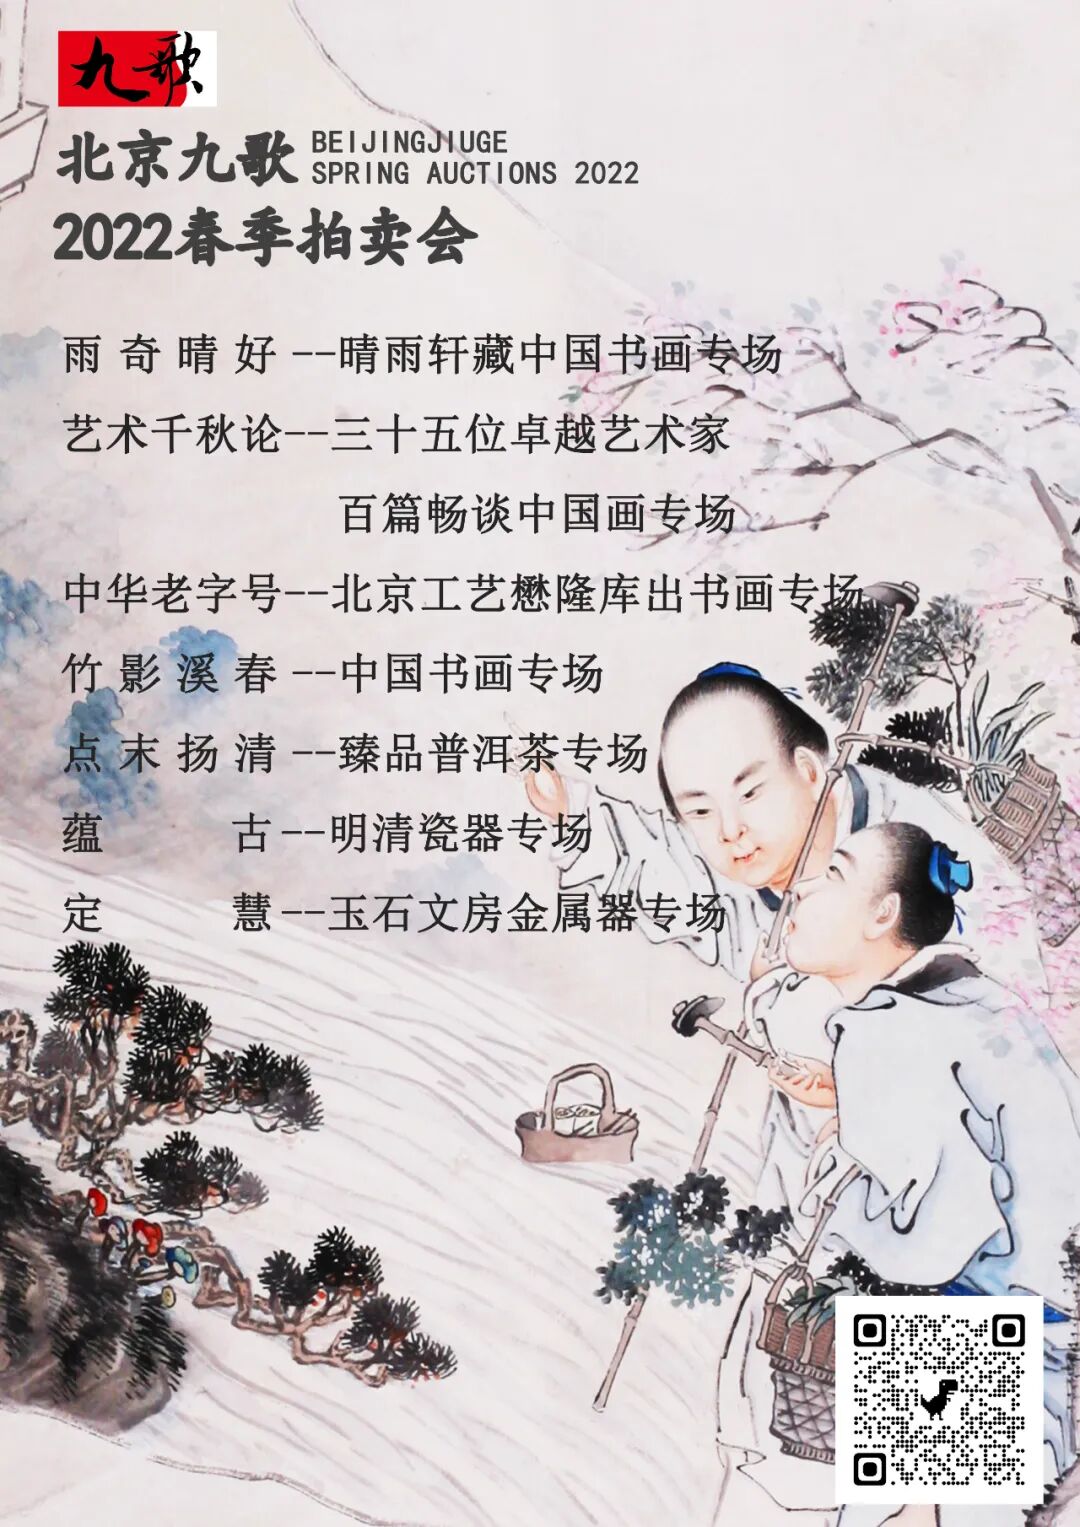 九歌
北京九歌
BEIJINGJIUGE
SPRING AUCTIONS 2022
2022春季拍卖会
雨奇晴好--晴雨轩藏中国书画专场
艺术千秋论--三十五位卓越艺术家
百篇畅谈中国画专场
中华老字号--北京工艺懋隆库出书画专场
竹影溪春--中国书画专场
点末扬清--臻品普洱茶专场
蕴古--明清瓷器专场
定慧--玉石文房金属器专场